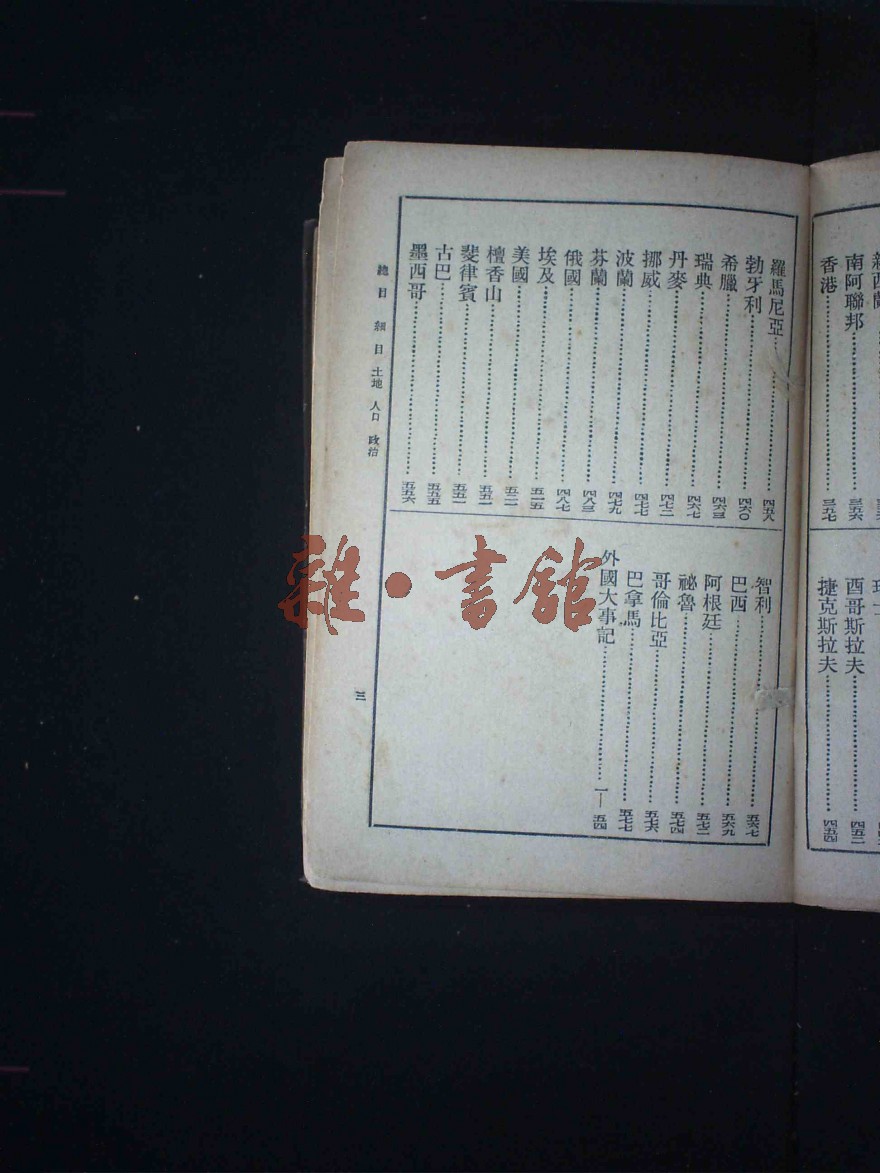 南阿聯邦 三五六
香港 三五七
酉哥斯拉夫 四五二
捷克斯拉夫 四五四
羅馬尼亞 四五八
勃牙利 四六〇
希臘 四六三
瑞典 四六七
丹麥 四七二
挪威 四七七
波蘭 四七九
芬蘭 四八三
俄國 四八七
埃及 五一五
美國 五二一
檀香山 五五一
斐律賓 五五一
古巴 五五五
墨西哥 五五六
智利 五六七
巴西 五六九
阿根廷 五七二
祕魯 五七四
哥倫比亞 五七六
巴拿馬 五七七
外國大事記 一—五四
總目 細目 土地 人口 政治
三
雜·書館